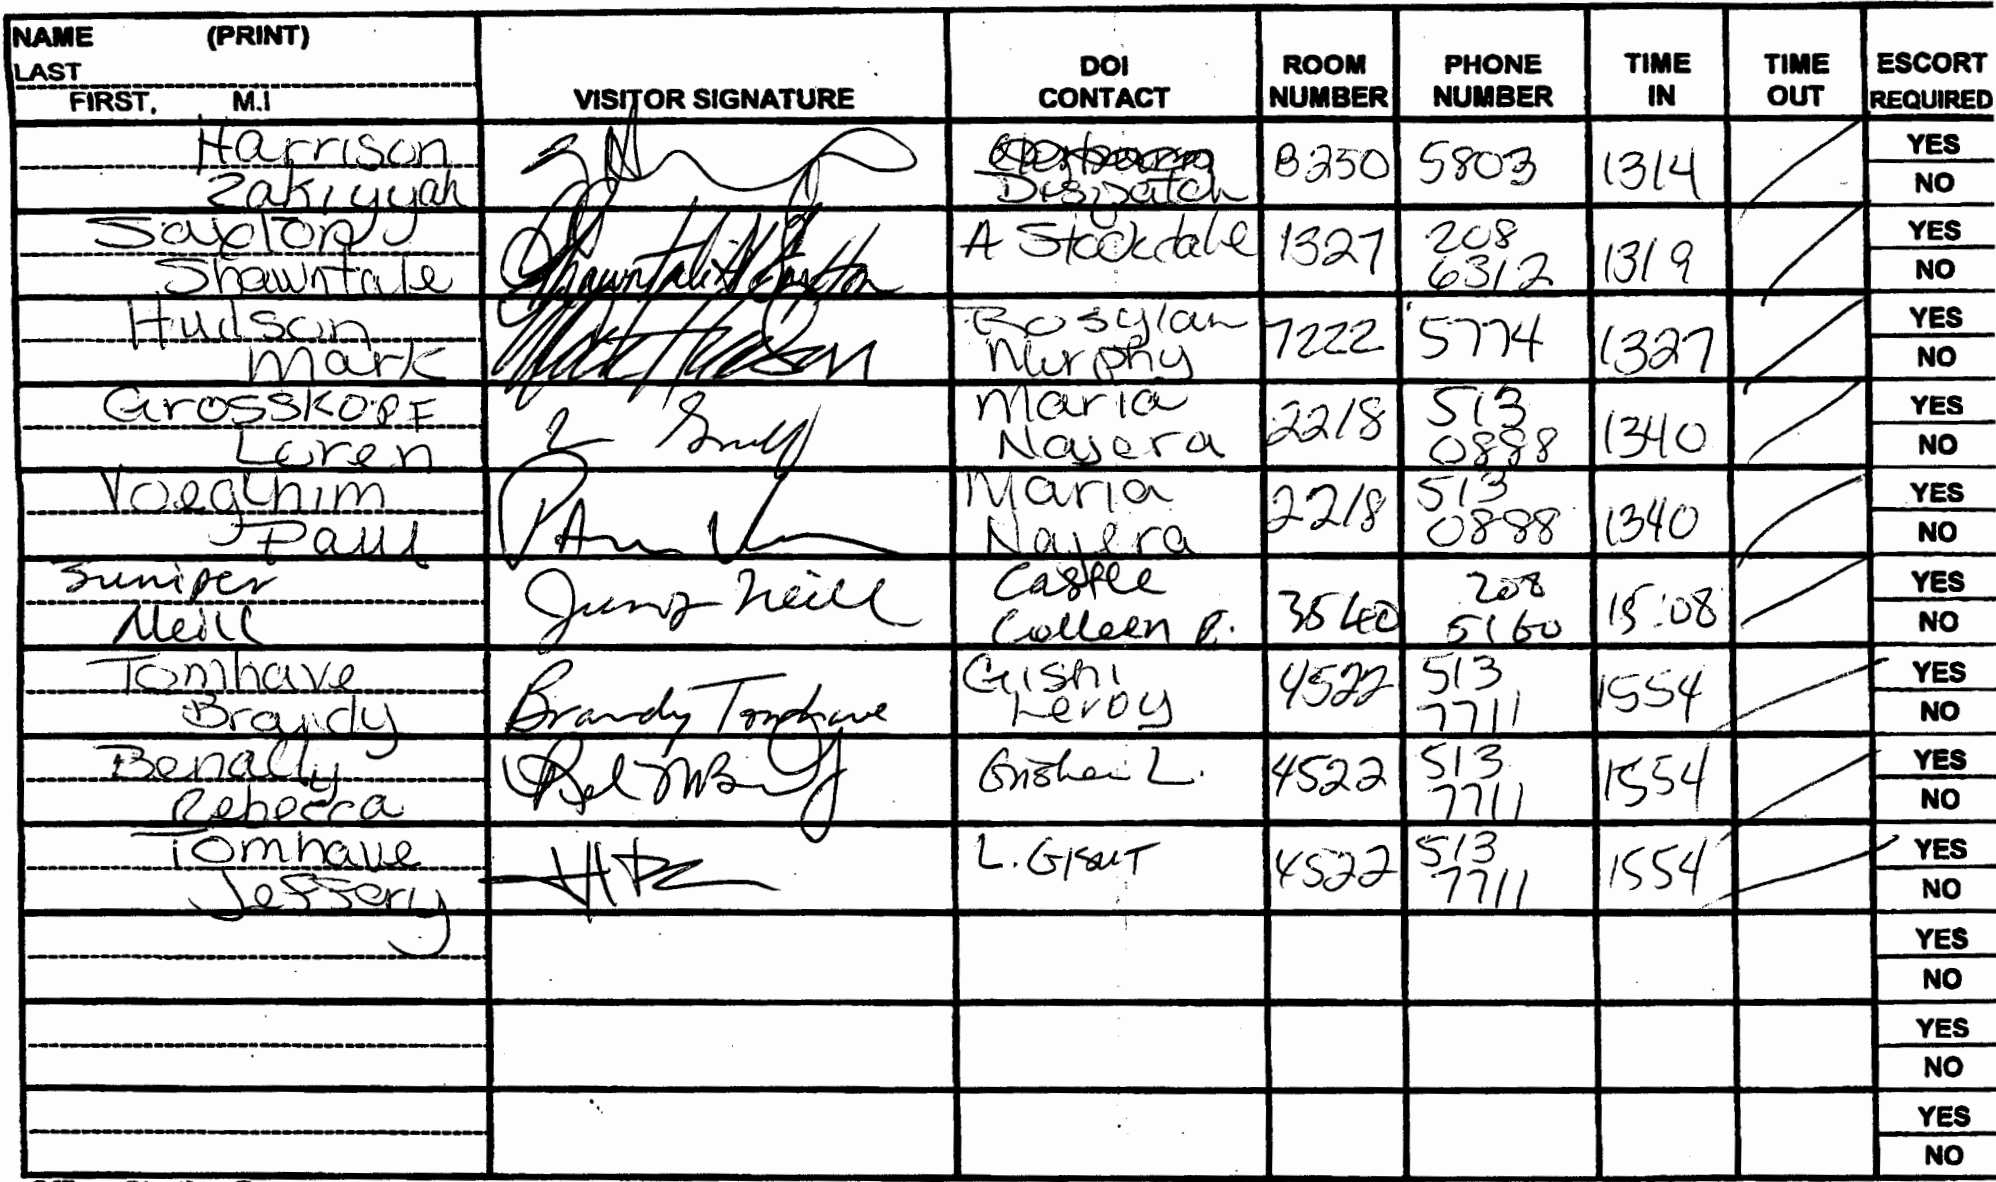 NAME (PRINT)
LAST
FIRST, M.I
VISITOR SIGNATURE
DOI
CONTACT
ROOM
NUMBER
PHONE
NUMBER
TIME
IN
TIME
OUT
ESCORT
REQUIRED
Harrison
Zakiyyah
Dispatch
B250
5803
1314
YES
NO
Saxton
Shawntale
Shawntale Saxton
A Stockdale
1327
208
6312
1319
YES
NO
Hudson
Mark
Mark Hudson
Rosylan
Murphy
7222
5774
1327
YES
NO
Grosskopf
Loren
Maria
Najera
2218
513
0888
1340
YES
NO
Paul
Maria
Najera
2218
513
0888
1340
YES
NO
Juniper
Neill
Junip Neill
Castle
Colleen P.
3540
208
5160
15:08
YES
NO
Tomhave
Brandy
Brandy Tomhave
Gishi
Leroy
4522
513
7711
1554
YES
NO
Benally
Rebecca
L.
4522
513
7711
1554
YES
NO
Tomhave
Jeffery
L.
4522
513
7711
1554
YES
NO
YES
NO
YES
NO
YES
NO